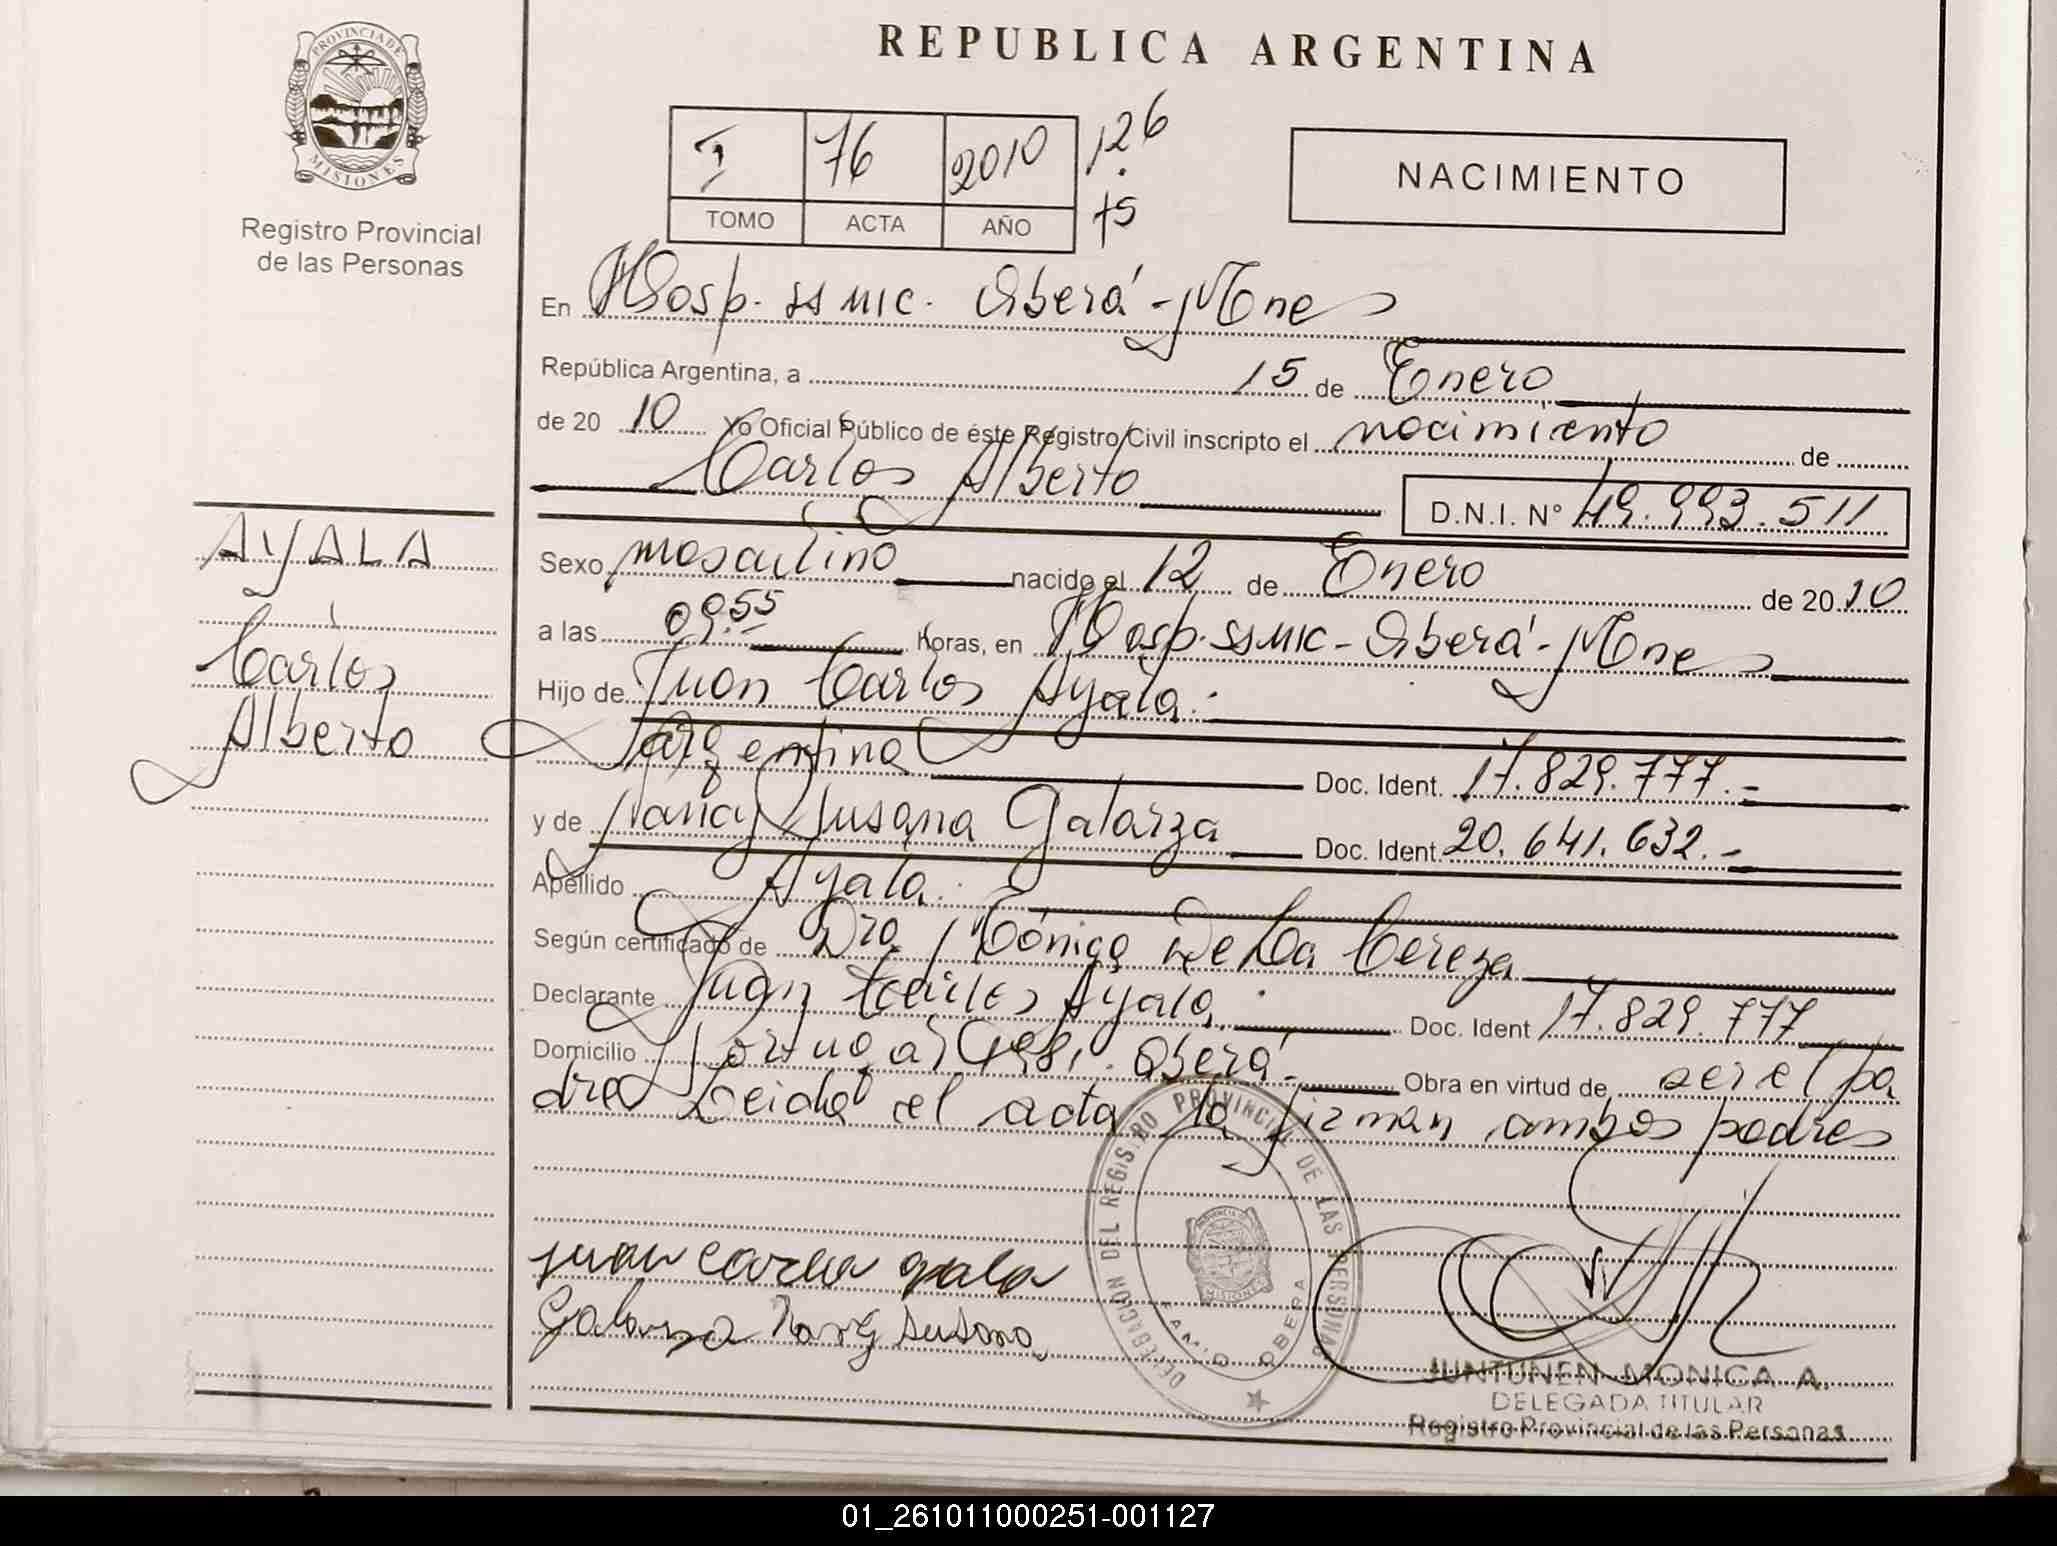 PROVINCIA DE
MISIONES
Registro Provincial
de las Personas
REPUBLICA ARGENTINA
I 76 2010 126
TOMO ACTA AÑO 75
NACIMIENTO
En Hosp. SSMIC. Oberá - Mnes
República Argentina, a 15 de Enero
de 20 10 Yo Oficial Público de éste Registro Civil inscripto el nacimiento de
Carlos Alberto D.N.I. Nº 49.993.511
AYALA
Carlos
Alberto
Sexo masculino nacido el 12 de Enero de 20 10
a las 09.55 horas, en Hosp. SSMIC - Oberá - Mnes
Hijo de Juan Carlos Ayala.
Argentino Doc. Ident. 17.829.777.-
y de Nancy Susana Galarza Doc. Ident. 20.641.632.-
Apellido Ayala.
Según certificado de Dra. Mónica De La Cereza
Declarante Juan Carlos Ayala. Doc. Ident 17.829.777
Domicilio Portugal 981. Oberá - Obra en virtud de ser el pa
dre Leida el acta la firman ambos padres
juan carlos ayala
Galarza Nancy Susana
DELEGACION DEL REGISTRO PROVINCIAL DE LAS PERSONAS
OBERA
MISIONES
JUNTUNEN MONICA A.
DELEGADA TITULAR
Registro Provincial de las Personas
01_261011000251-001127